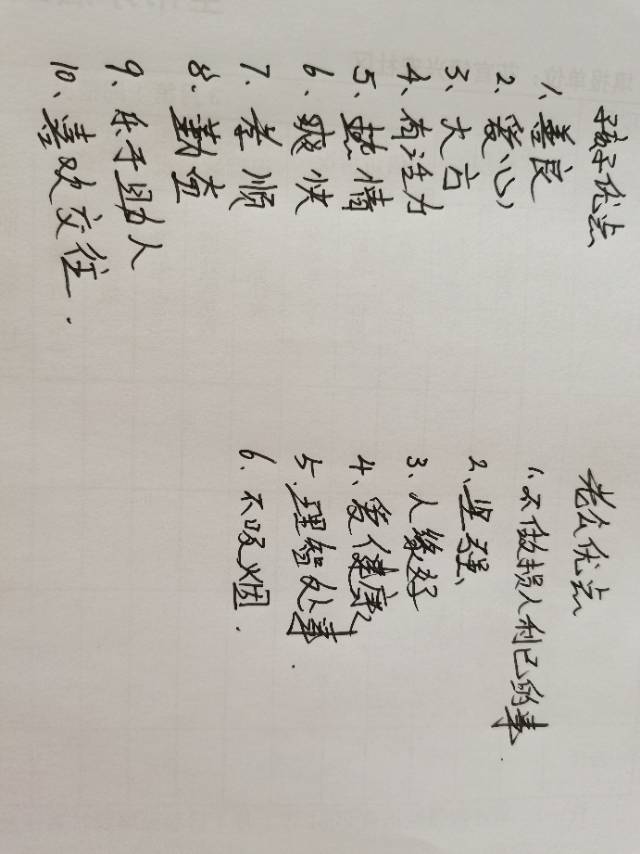 孩子优点
1、善良
2、爱心
3、大方
4、有活力
5、热情
6、爽快
7、孝顺
8、勤奋
9、乐于助人
10、喜欢交往.
老公优点
1、不做损人利己的事.
2、坚强
3、人缘好
4、爱健康
5、理智处事.
6、不吸烟.